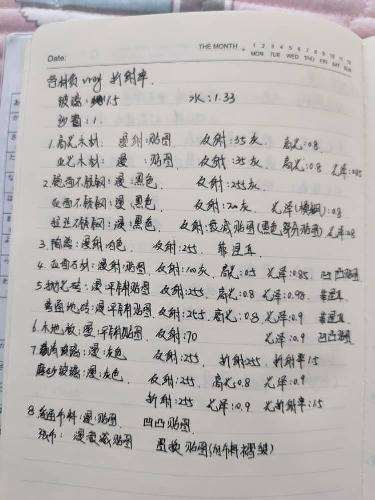 Date:
THE MONTH 1 2 3 4 5 6 7 8 9 10 11 12
MON TUE WED THU FRI SAT SUN
各材质vray 折射率.
玻璃:1.5 水:1.33
纱窗:1.
1.高光木材:漫射:贴图 反射:35灰 高光:0.8
亚光木材:漫:贴图 反射:35灰 高光:0.8 光泽:0.85
2.镜面不锈钢:漫:黑色 反射:255灰
亚面不锈钢:漫:黑色 反射:200灰 光泽(模糊):0.8
拉丝不锈钢:漫:黑色 反射:衰减贴图(黑色部分贴图) 光泽0.8
3.陶瓷:漫射:白色 反射:255 菲涅耳
4.亚面石材:漫射:贴图 反射:100灰 高光:0.5 光泽:0.85 凹凸贴图
5.抛光砖:漫:平铺贴图 反射:255 高光:0.8 光泽:0.98 菲涅耳
普通地砖:漫:平铺贴图 反射:255 高光:0.8 光泽:0.9 菲涅耳
6.木地板:漫:平铺贴图 反射:70 光泽:0.9 凹凸贴图
7.清玻璃:漫:灰色 反射:255 折射255 折射率1.5
磨砂玻璃:漫:灰色 反射:255 高光:0.8 光泽:0.9
折射:255 光泽:0.9 光折射率:1.5
8.普通布料:漫:贴图 凹凸贴图
绒布:漫:衰减贴图 置换贴图(